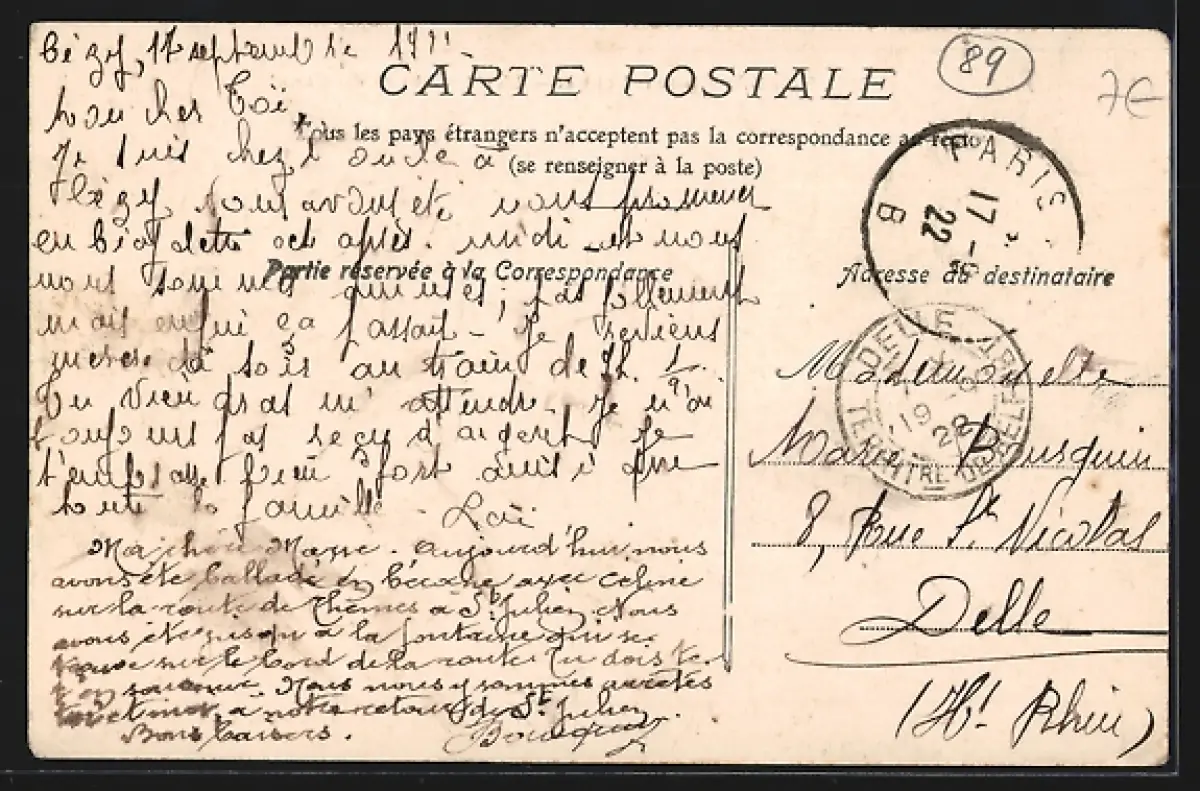 Cézy, 17 septembre 19
CARTE POSTALE
89
7€
Mon cher Coï,
Tous les pays étrangers n'acceptent pas la correspondance au recto
(se renseigner à la poste)
Je suis chez l'oncle à
Cézy. Nous avons été nous promener
en bicyclette cet après-midi et nous
nous sommes amusés, pas follement
mais enfin ça passait. Je reviens
ce soir au train de 7h.
On m'attendre. Je n'ai
toujours pas reçu d'argent. Je
t'embrasse bien fort ainsi que
toute la famille.
Loï
Partie réservée à la Correspondance
Ma chère . Aujourd'hui nous
avons été balladé en bécane avec Céline
sur la route de Thèmes à St Julien. Nous
avons été jusqu'à la fontaine qui se
trouve sur le bord de la route. Tu dois te
souvenir. Nous nous y sommes arrêtés
à notre retour de St Julien.
Bons baisers.
PARIS
17 - 
22
B
Adresse du destinataire
DELLE
1922
TERRITRE DE BELFORT
Mademoiselle
Marie Bousquin
8, Rue St Nicolas
Delle
(Ht Rhin)